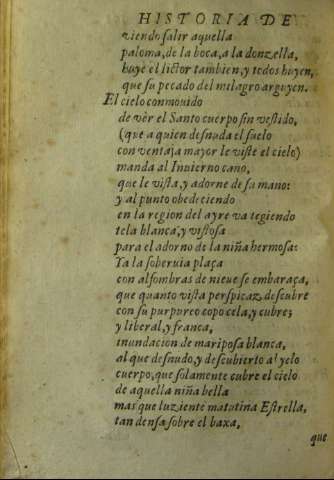 HISTORIA DE
viendo salir aquella
paloma, de la boca, a la donzella,
huye el lictor tambien, y todos huyen,
que su pecado del milagro arguyen.
El cielo conmouido
de vèr el Santo cuerpo sin vestido,
(que a quien desnuda el suelo
con ventaja mayor le viste el cielo)
manda al Inuierno cano,
que le vista, y adorne de su mano:
y al punto obedeciendo
en la region del ayre va tegiendo
tela blanca, y vistosa
para el adorno de la niña hermosa:
Ya la soberuia plaça
con alfombras de nieue se embaraça,
que quanto vista perspicaz descubre
con su purpureo copo cela, y cubre;
y liberal, y franca,
inundacion de mariposa blanca,
al que desnudo, y descubierto al yelo
cuerpo, que solamente cubre el cielo
de aquella niña bella
mas que luziente matutina Estrella,
tan densa sobre el baxa,
que